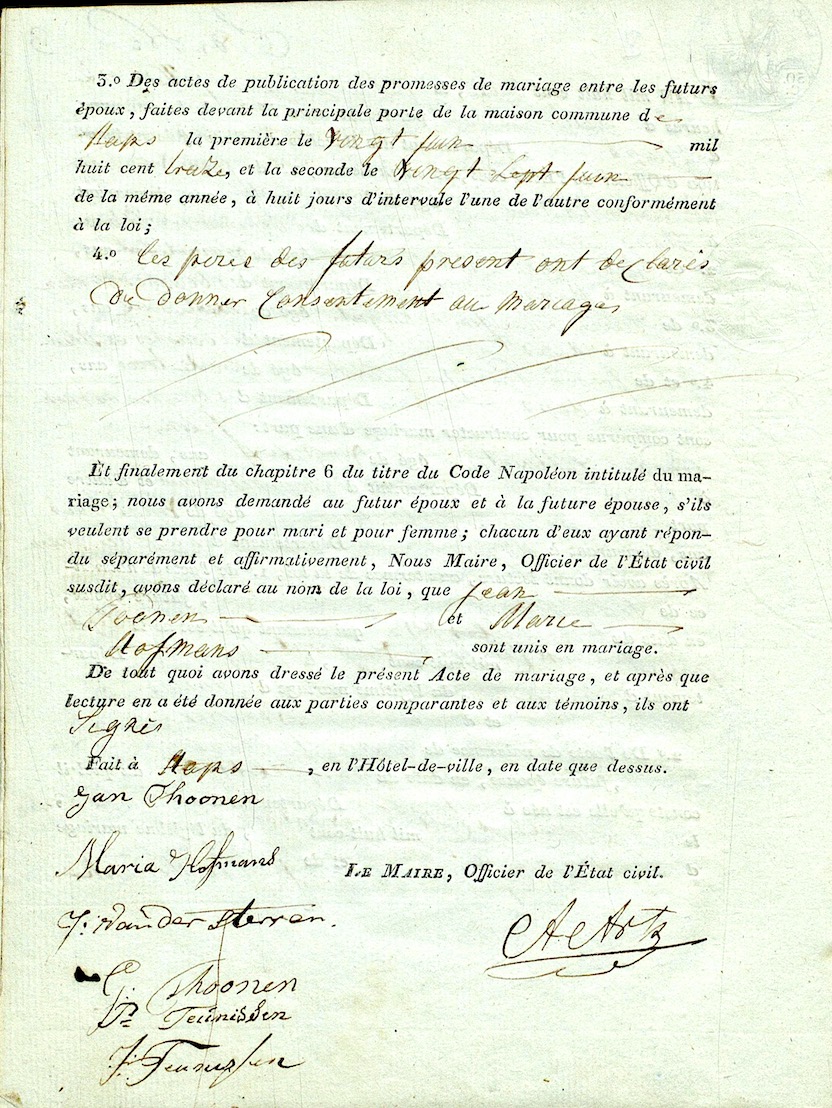 3.º Des actes de publication des promesses de mariage entre les futurs
époux, faites devant la principale porte de la maison commune de
Haps la première le vingt juin mil
huit cent treize, et la seconde le vingt Sept juin
de la même année, à huit jours d'intervale l'une de l'autre conformément
à la loi;
4.º les peres des futurs present ont declarés
de donner Consentement au mariage
Et finalement du chapitre 6 du titre du Code Napoléon intitulé du ma-
riage; nous avons demandé au futur époux et à la future épouse, s'ils
veulent se prendre pour mari et pour femme; chacun d'eux ayant répon-
du séparément et affirmativement, Nous Maire, Officier de l'État civil
susdit, avons déclaré au nom de la loi, que Jean
Toonen et Marie
Hofmans sont unis en mariage.
De tout quoi avons dressé le présent Acte de mariage, et après que
lecture en a été donnée aux parties comparantes et aux témoins, ils ont
Signés
Fait à Haps, en l'Hôtel-de-ville, en date que dessus.
Jan Thoonen
Maria Hofmans
LE MAIRE, Officier de l'État civil.
J: van der Sterren.
G: Thoonen
P: Teunissen
J: Teunissen